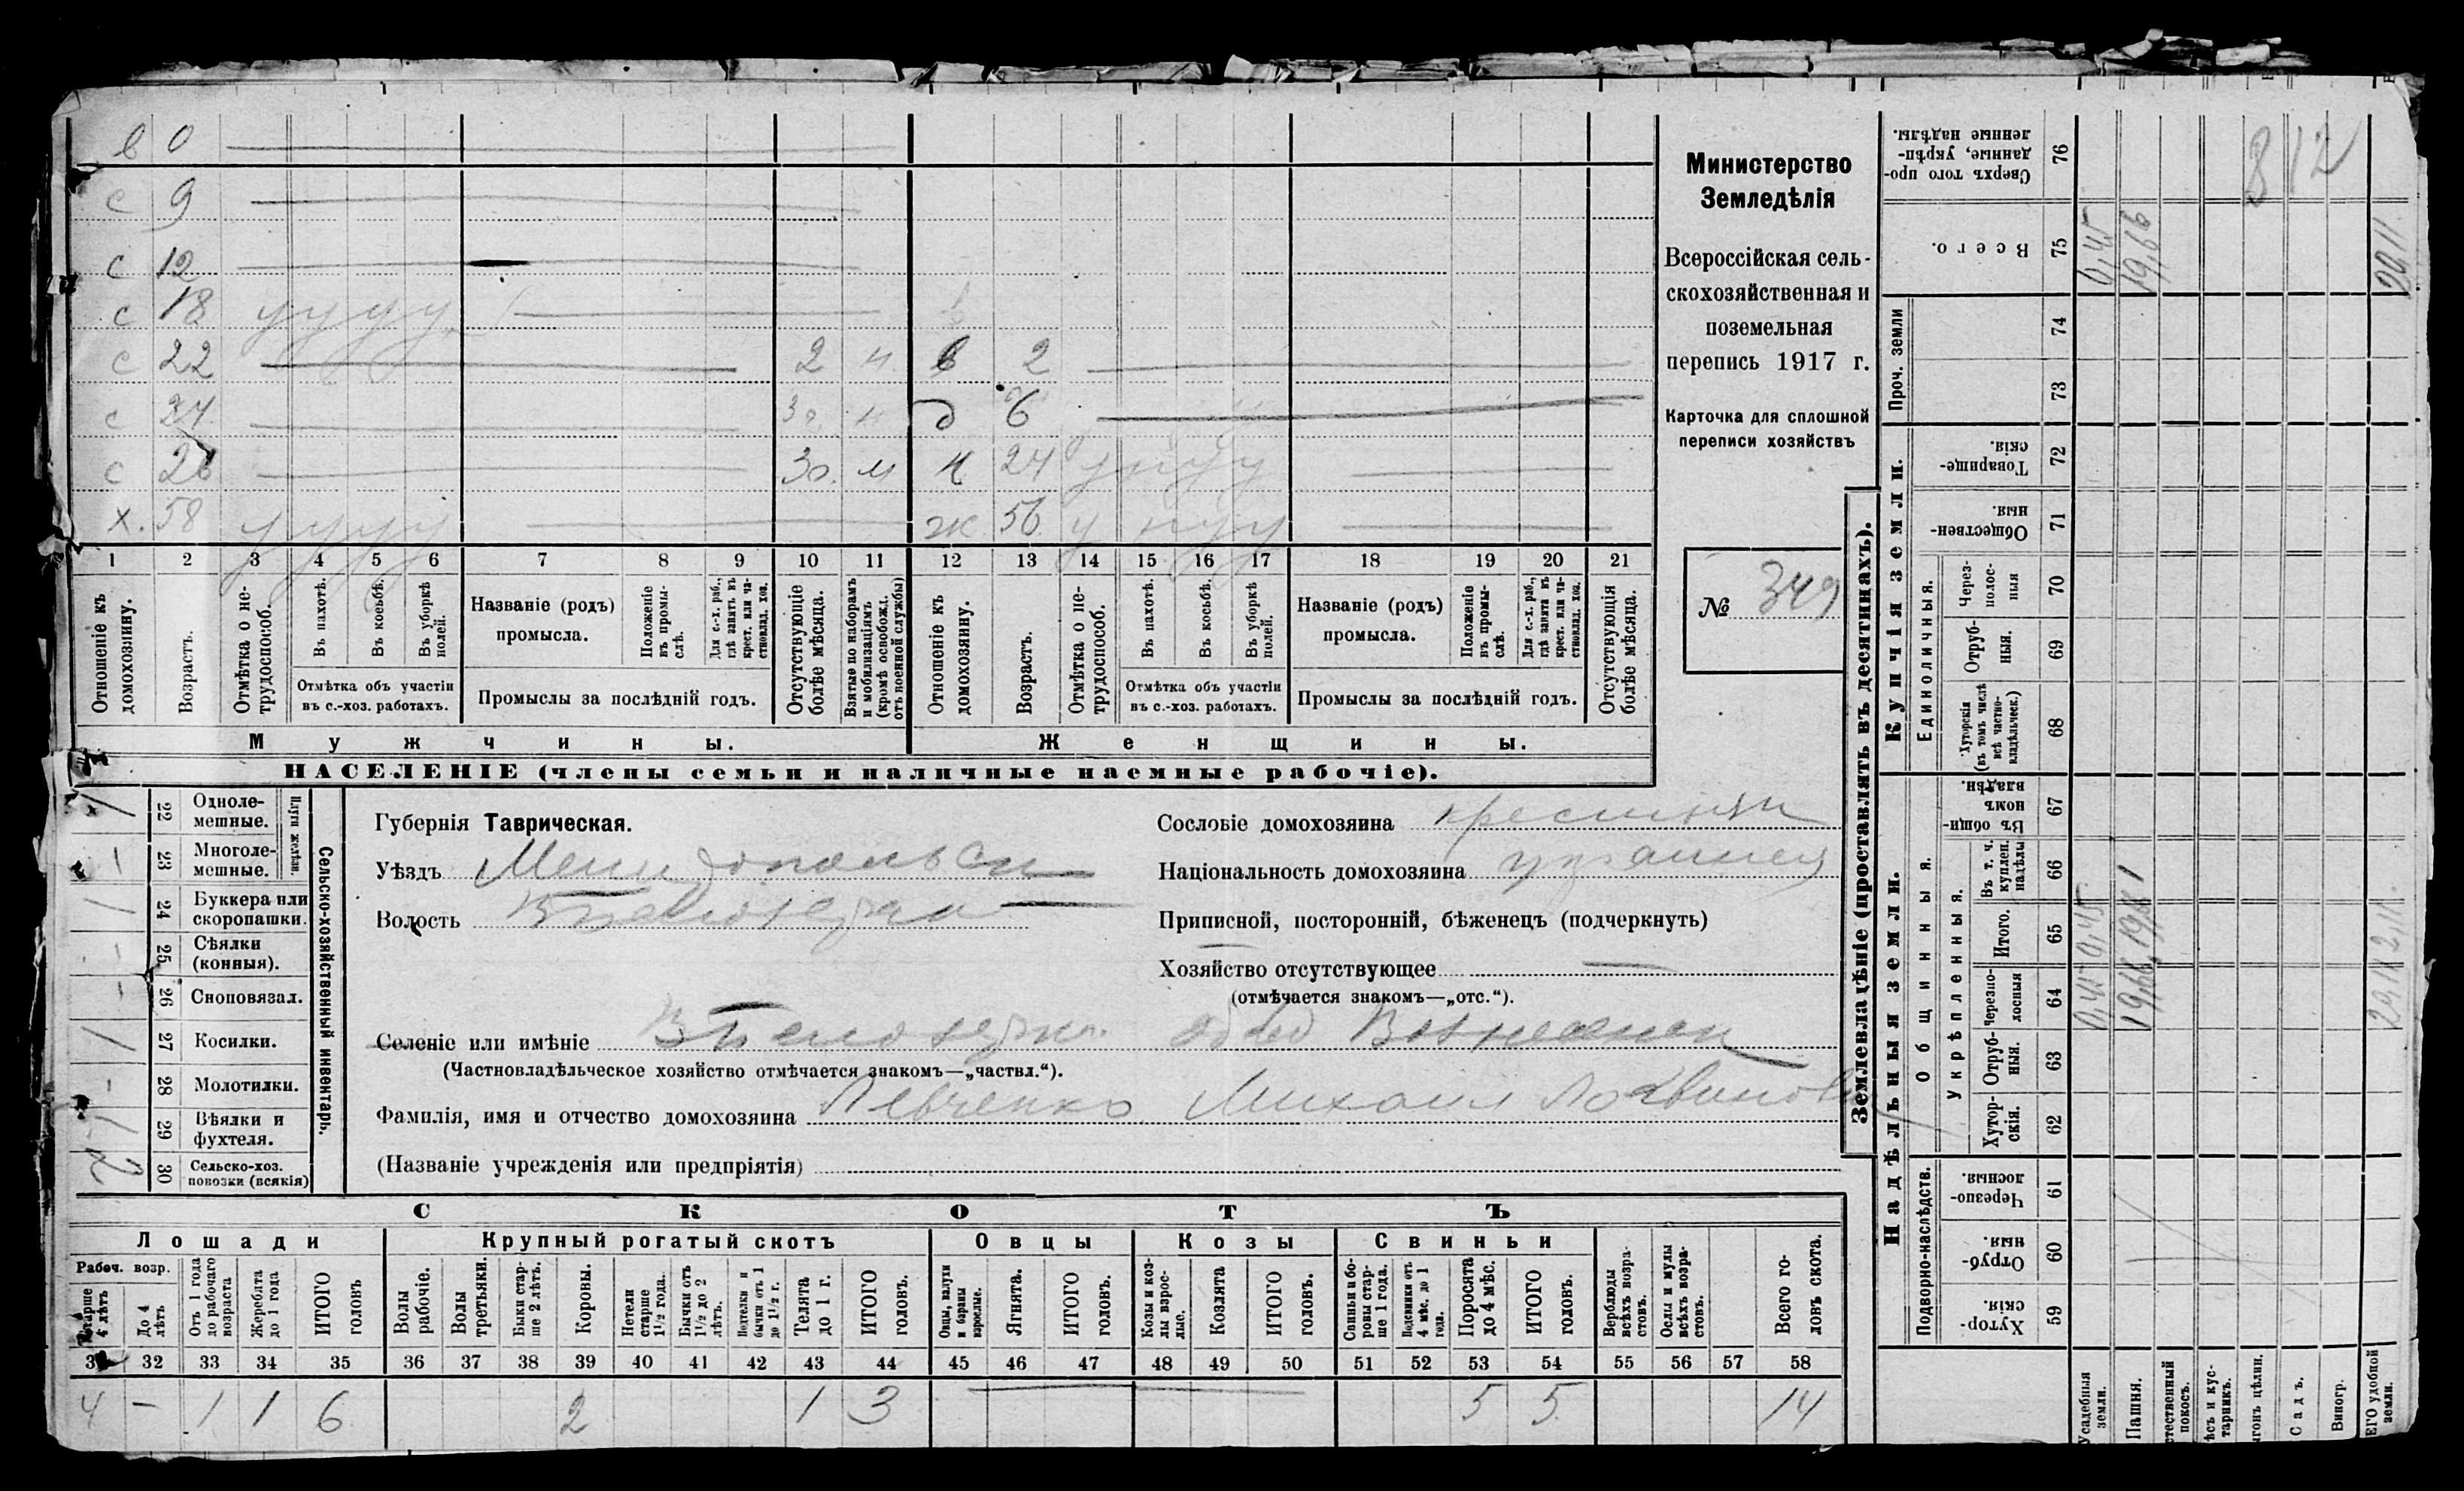 в 0
с 9
с 12
с 18 у у у у
с 22 2 в 2
с 24 д 6
с 26 м н 24 у у у
х. 58 у у у у ж 56 у у у
1 2 3 4 5 6 7 8 9 10 11 12 13 14 15 16 17 18 19 20 21
Отношеніе къ домохозяину.
Возрастъ.
Отмѣтка о не-трудоспособ.
Въ пахотѣ.
Въ косьбѣ.
Въ уборкѣ полей.
Отмѣтка объ участіи въ с.-хоз. работахъ.
Названіе (родъ) промысла.
Положеніе въ промы-слѣ.
Для с.-х. раб., гдѣ занятъ въ крест. или ча-стновлад. хоз.
Промыслы за послѣдній годъ.
Отсутствующіе болѣе мѣсяца.
Взятые по наборамъ и мобилизаціямъ (кромѣ освобожд. отъ военной службы)
Отношеніе къ домохозяину.
Возрастъ.
Отмѣтка о не-трудоспособ.
Въ пахотѣ.
Въ косьбѣ.
Въ уборкѣ полей.
Отмѣтка объ участіи въ с.-хоз. работахъ.
Названіе (родъ) промысла.
Положеніе въ промы-слѣ.
Для с.-х. раб., гдѣ занята въ крест. или ча-стновлад. хоз.
Промыслы за послѣдній годъ.
Отсутствующія болѣе мѣсяца.
Мужчины.
Женщины.
НАСЕЛЕНІЕ (члены семьи и наличные наемные рабочіе).
Министерство
Земледѣлія
Всероссійская сель-
скохозяйственная и
поземельная
перепись 1917 г.
Карточка для сплошной
переписи хозяйствъ
№ 349
22 Одноле-мешные. 1
23 Многоле-мешные.
Плуги желѣзн.
24 Буккера или скоропашки. 1
25 Сѣялки (конныя).
26 Сноповязал.
27 Косилки. 1
28 Молотилки.
29 Вѣялки и фухтеля.
30 Сельско-хоз. повозки (всякія) 2
Сельско-хозяйственный инвентарь.
Губернія Таврическая.
Уѣздъ Мелитопольск
Волость Бѣлозерка
Сословіе домохозяина крестьян
Національность домохозяина украинец
Приписной, посторонній, бѣженецъ (подчеркнуть)
Хозяйство отсутствующее —
(отмѣчается знакомъ—„отс.“).
Селеніе или имѣніе Бѣлозерка
(Частновладѣльческое хозяйство отмѣчается знакомъ—„частвл.“).
Фамилія, имя и отчество домохозяина Левченко Михаил Логвинов
(Названіе учрежденія или предпріятія)
СКОТЪ
Лошади Крупный рогатый скотъ Овцы Козы Свиньи
Рабоч. возр.
Старше 4 лѣтъ
До 4 лѣтъ
Отъ 1 года до рабочаго возраста
Жеребята до 1 года
ИТОГО головъ
Волы рабочіе.
Волы третьяки.
Быки стар-ше 2 лѣтъ.
Коровы.
Нетели старше 1½ года.
Бычки отъ 1½ до 2 лѣтъ.
Подтелки и бычки отъ 1 до 1½ г.
Телята до 1 г.
ИТОГО головъ.
Овцы, валухи и бараны взрослые.
Ягнята.
ИТОГО головъ.
Козы и коз-лы взрос-лые.
Козлята
ИТОГО головъ.
Свиньи и бо-ровы стар-ше 1 года.
Подсвинки отъ 4 мѣс. до 1 года.
Поросята до 4 мѣс.
ИТОГО головъ.
Верблюды всѣхъ возра-стовъ.
Ослы и мулы всѣхъ возра-стовъ.
Всего го-ловъ скота.
32 33 34 35 36 37 38 39 40 41 42 43 44 45 46 47 48 49 50 51 52 53 54 55 56 57 58
4 — 1 1 6 2 1 3 5 5 14
Землевладѣніе (проставлять въ десятинахъ).
Надѣльныя земли.
Купчія земли.
Проч. земли
Подворно-наслѣдств.
Общинныя.
Укрѣпленныя.
Единоличныя.
Сверхъ того про-данные, укрѣп-ленные надѣлы. 76
Всего. 75
74
73
Товарище-скія. 72
Обществен-ныя. 71
Через-полос-ныя 70
Отруб-ныя. 69
Хуторскія (въ томъ числѣ всѣ частно-владѣльческ.) 68
Въ общин-номъ владѣн. 67
Въ т. ч. куплен. надѣлы 66
Итого. 65
Черезпо-лосныя 64
Отруб-ныя. 63
Хутор-скія. 62
Черезпо-лосныя. 61
Отруб-ныя. 60
Хутор-скія. 59
0,45
19,66
20,11
8 12
0,45 0,45
Усадебныя земли.
Пашня.
тественный покосъ.
ѣсъ и кус-тарникъ.
ыгонъ цѣлин.
Садъ.
Виногр.
ЕГО удобной земли.